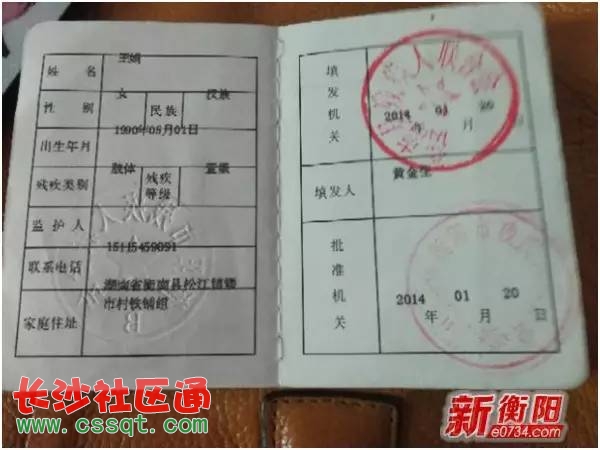 姓 名 王娟
性 别 女 民族 汉族
出生年月 1990年05月01日
残疾类别 肢体 残疾等级 壹级
监护人
联系电话 15115459091
家庭住址 湖南省衡南县松江镇
市村铁铺组
填发机关
2014 年 01 月 20
填发人 黄金生
批准机关
2014 年 01 月 20 日
长沙社区通
www.cssqt.com
新衡阳
e0734.com